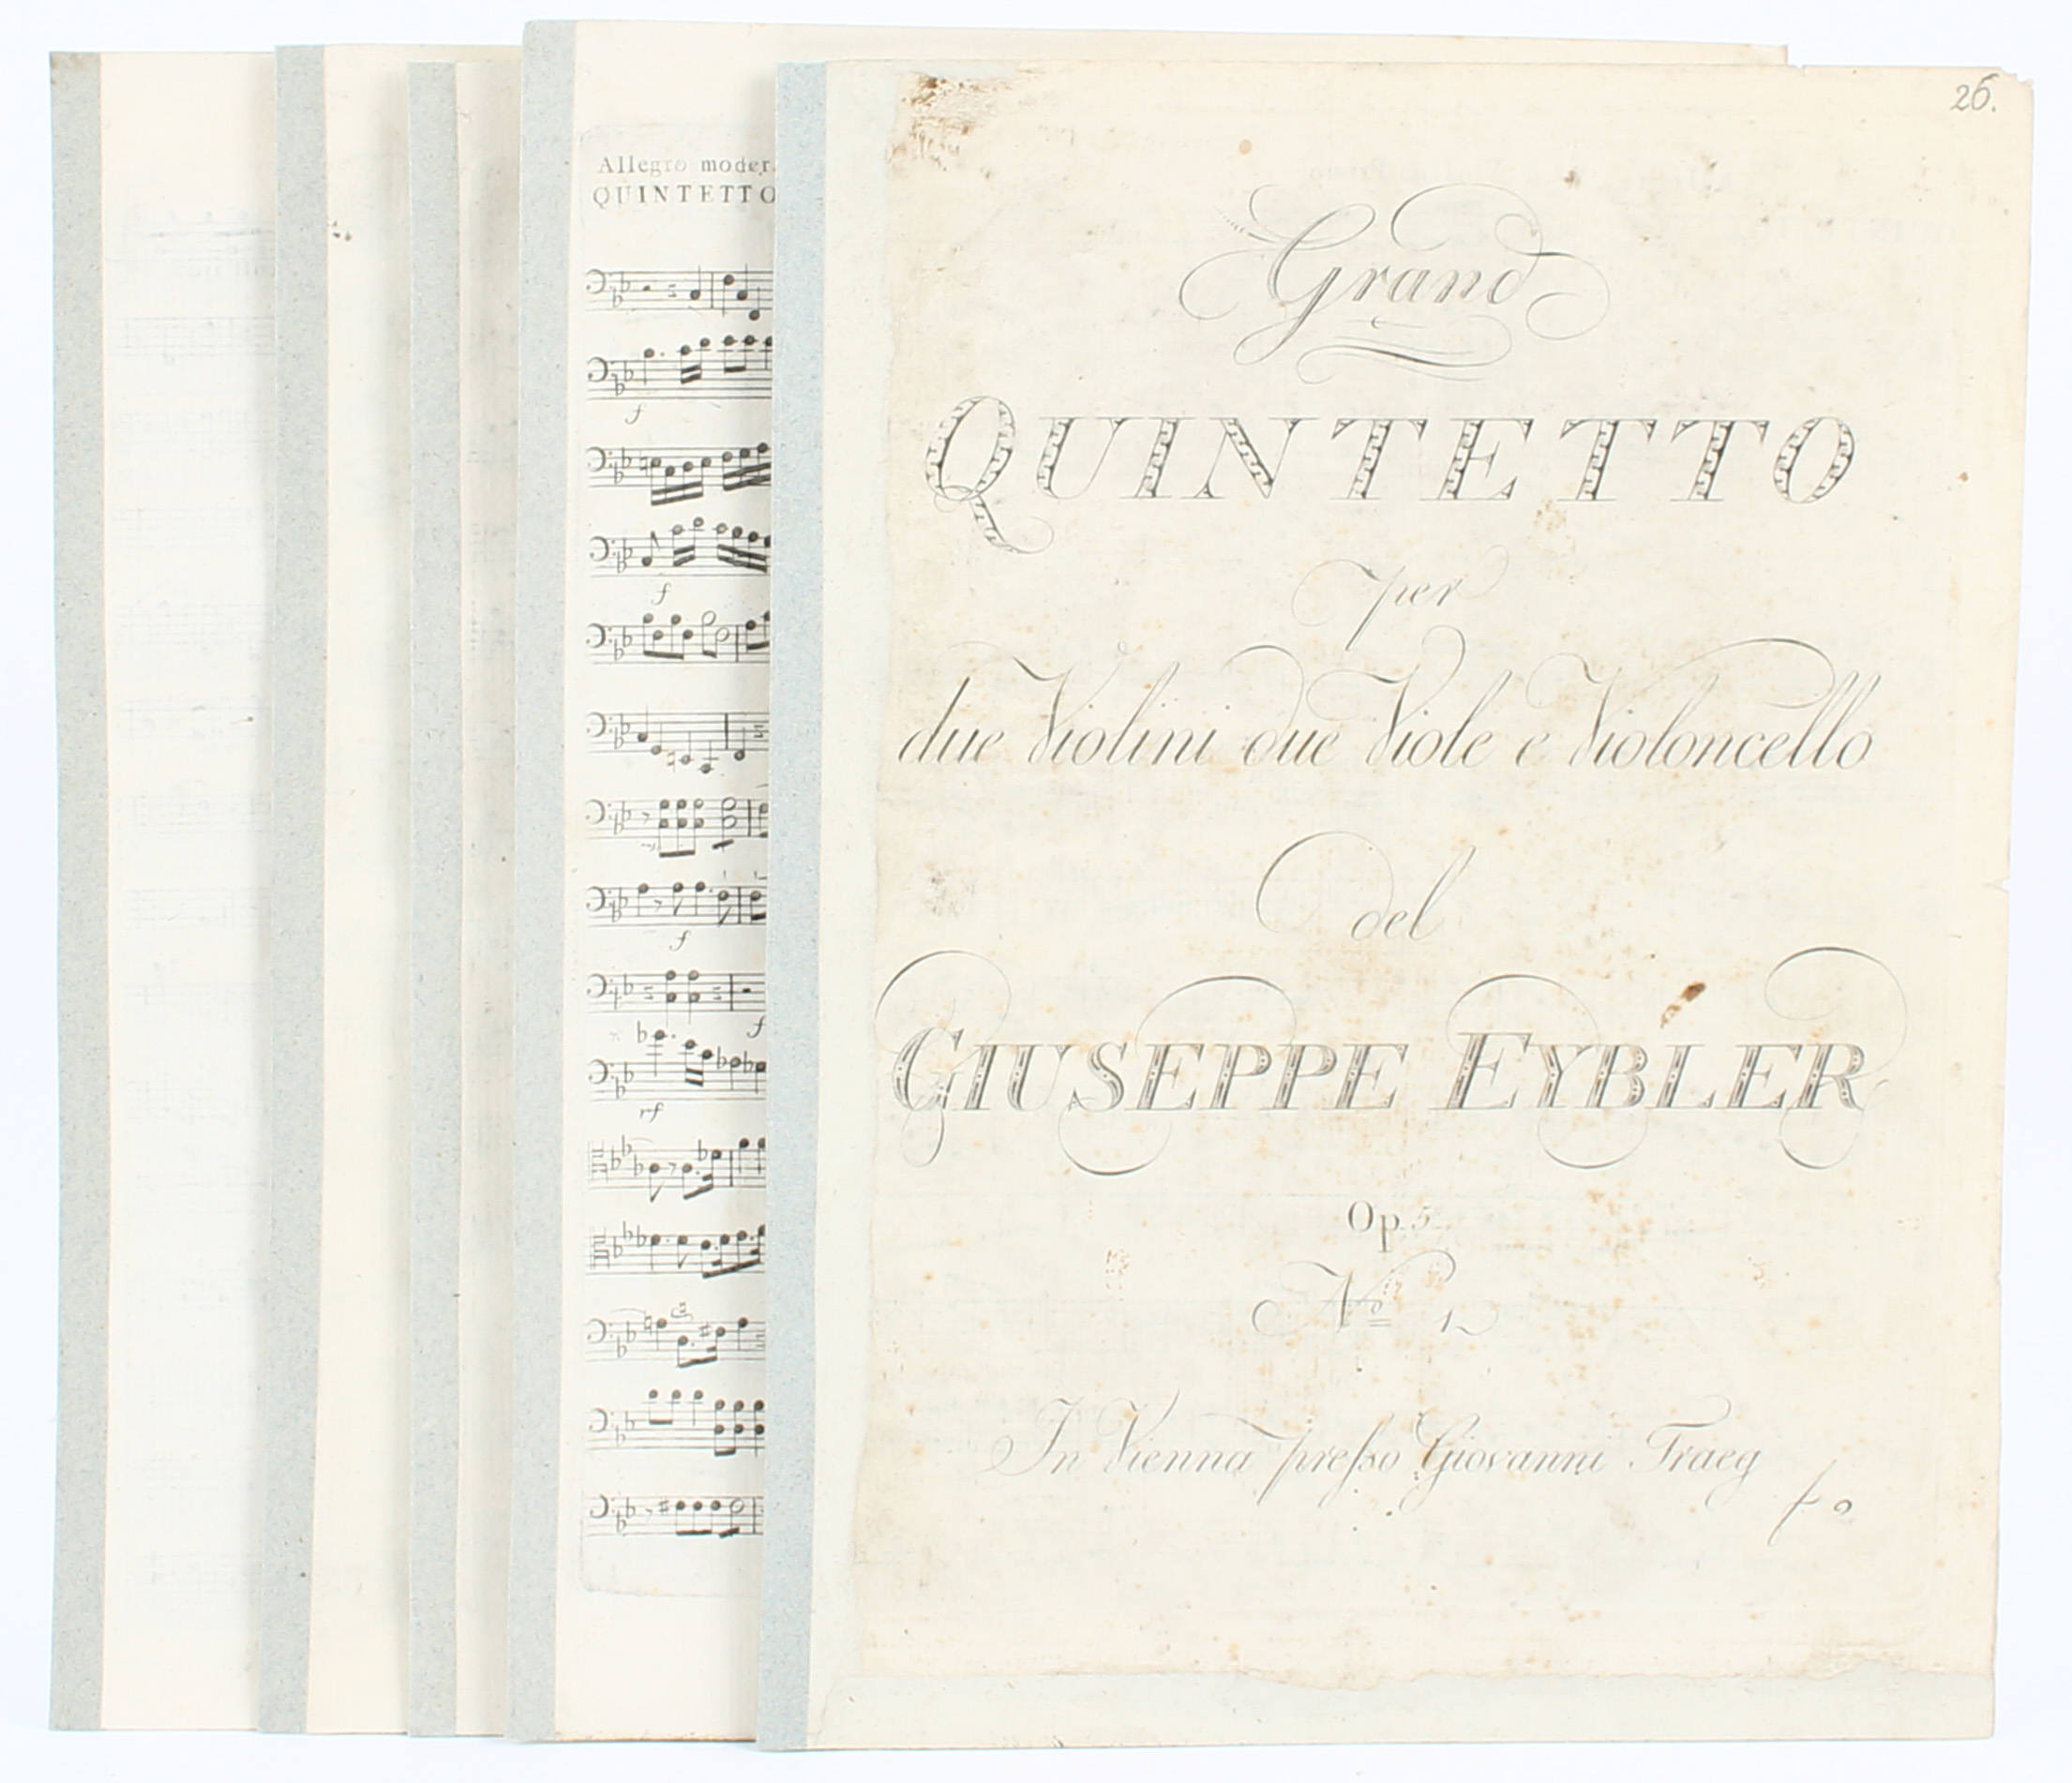 26.
Allegro moder
QUINTETTO
Grand
QUINTETTO
per
due Violini due Viole e Violoncello
del
GIUSEPPE EYBLER
Op. 5
No 1
In Vienna presso Giovanni Traeg
f
f
f
f
rf